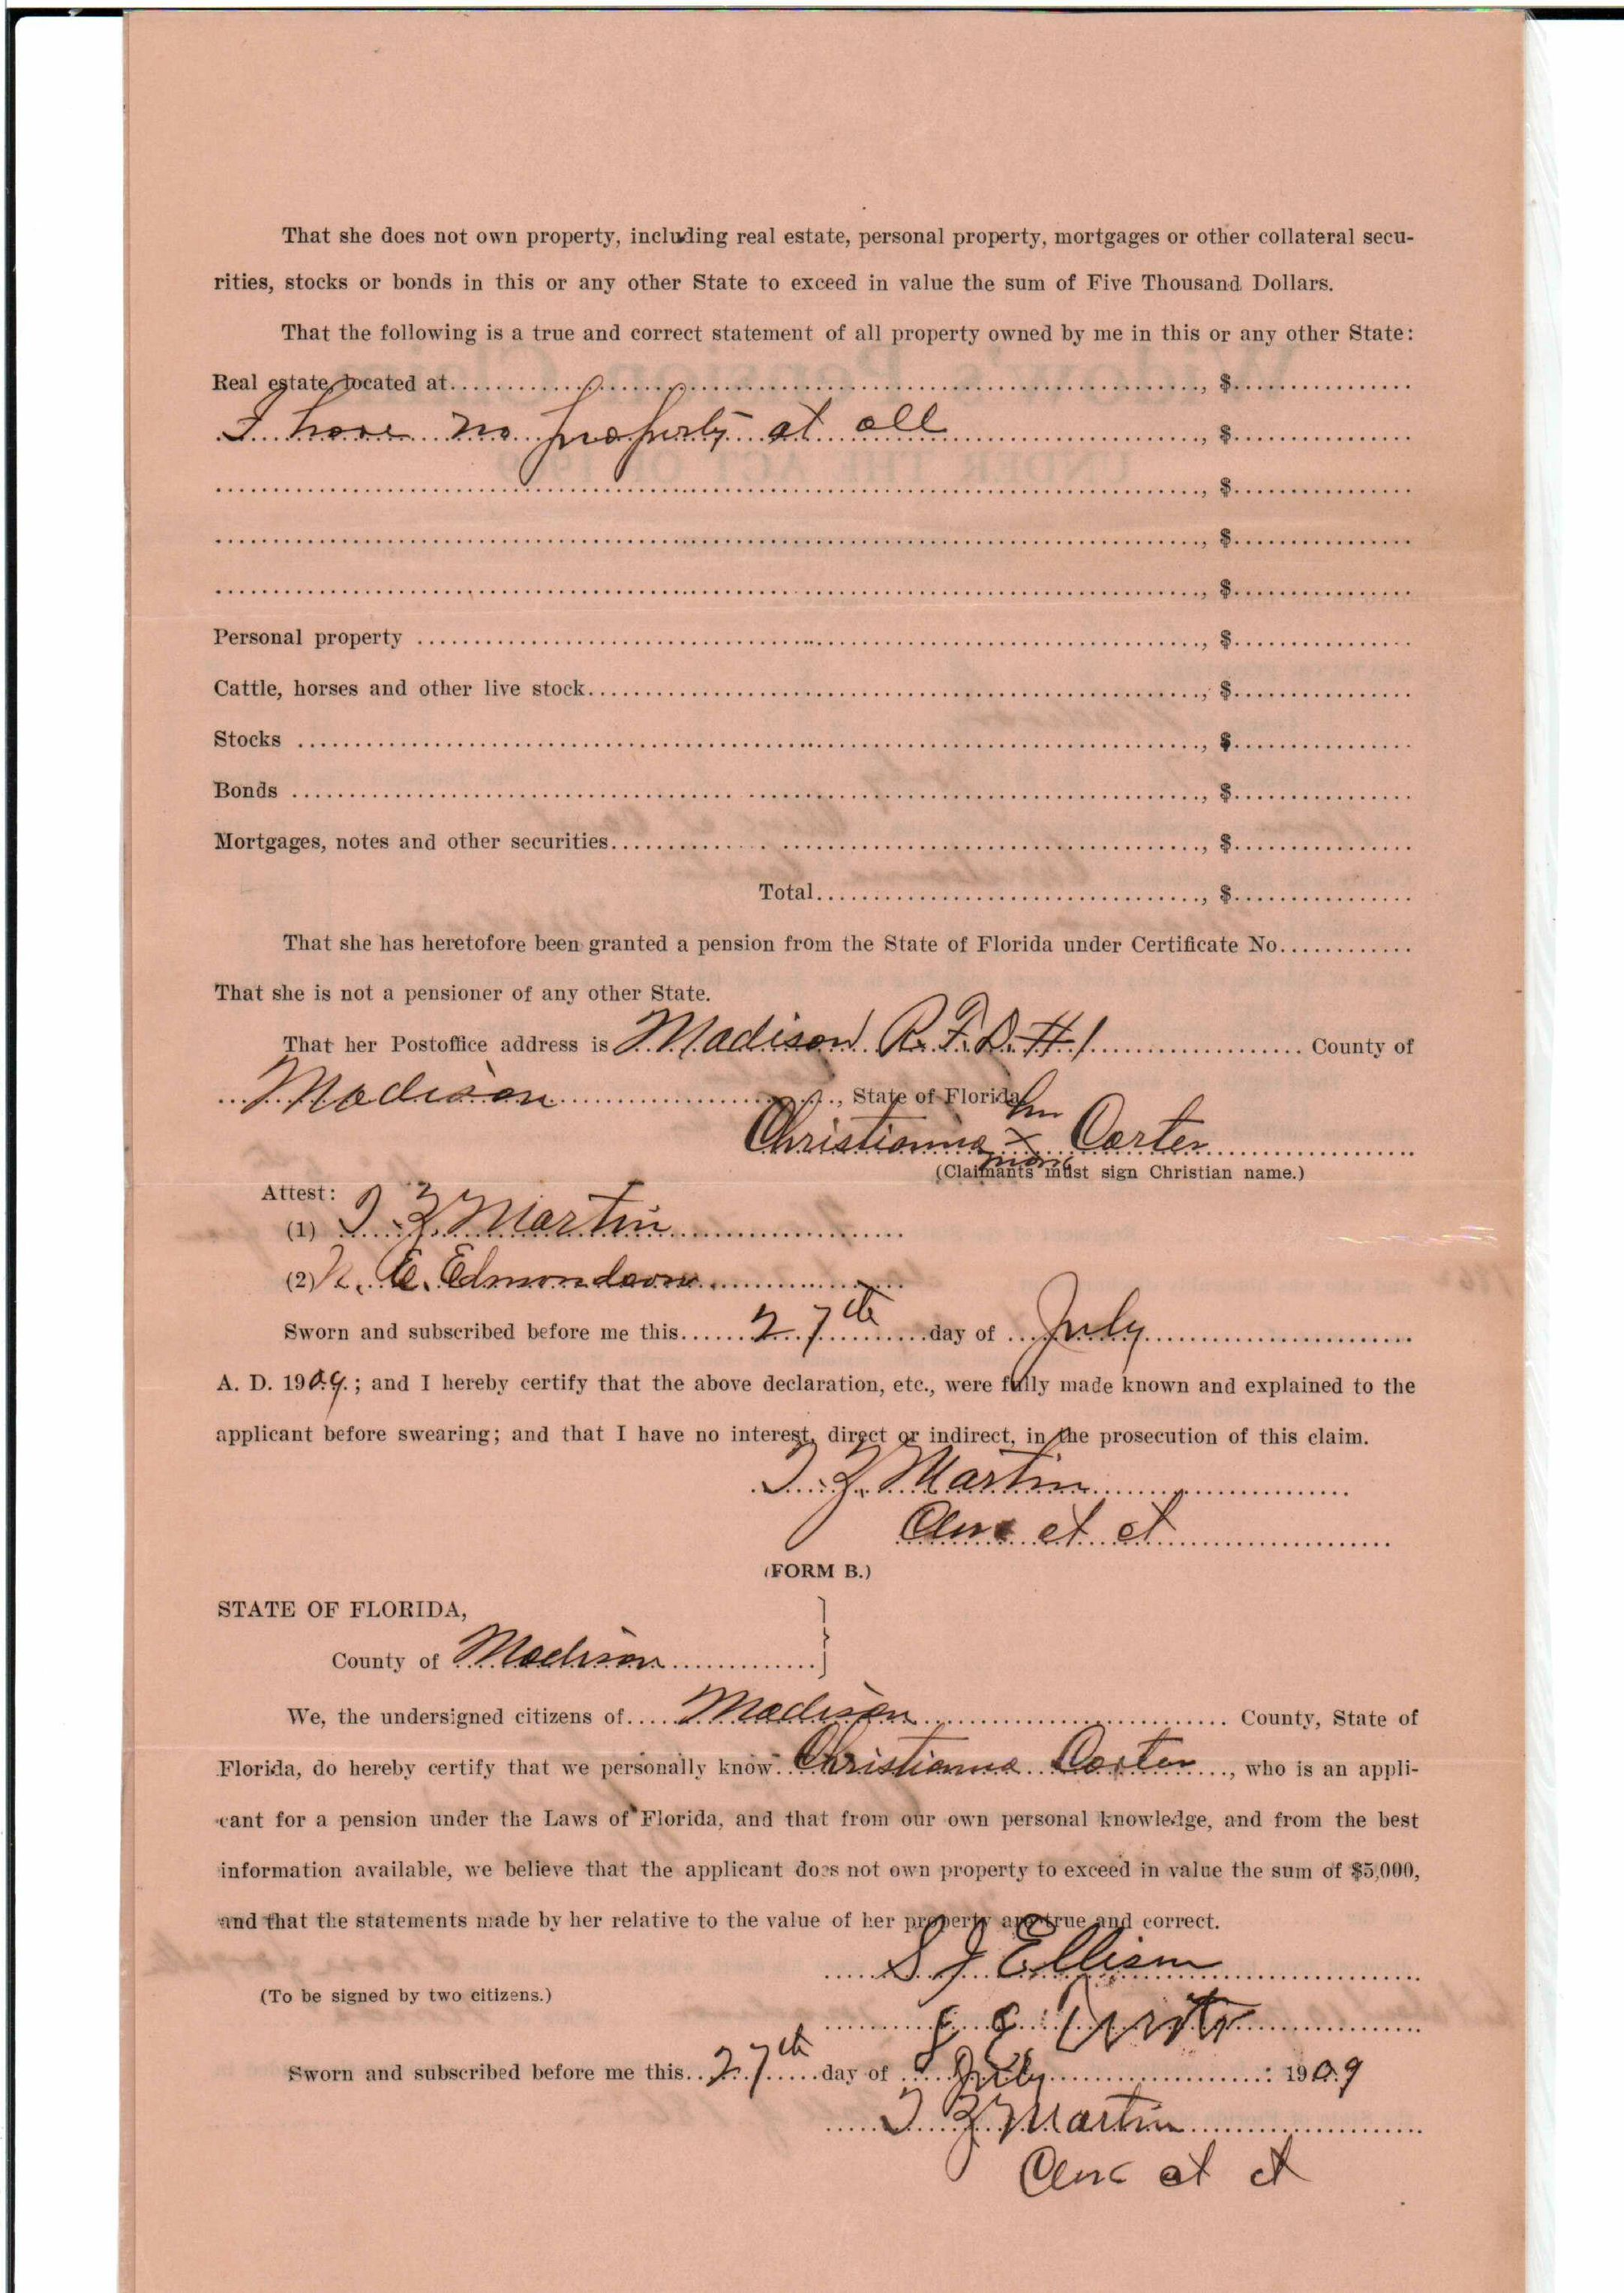 That she does not own property, including real estate, personal property, mortgages or other collateral secu-
rities, stocks or bonds in this or any other State to exceed in value the sum of Five Thousand Dollars.
That the following is a true and correct statement of all property owned by me in this or any other State:
Real estate, located at......, $......
I have no property at all......, $......
......, $......
......, $......
......, $......
Personal property ......, $......
Cattle, horses and other live stock......, $......
Stocks ......, $......
Bonds ......, $......
Mortgages, notes and other securities......, $......
Total......, $......
That she has heretofore been granted a pension from the State of Florida under Certificate No......
That she is not a pensioner of any other State.
That her Postoffice address is Madison R. F. D. # 1...... County of
Madison......, State of Florida.
her
Christianna x Carter
mark
(Claimants must sign Christian name.)
Attest:
(1) T. Z. Martin
(2) N. E. Edmondson
Sworn and subscribed before me this...... 27th ......day of ...July......
A. D. 1909.; and I hereby certify that the above declaration, etc., were fully made known and explained to the
applicant before swearing; and that I have no interest, direct or indirect, in the prosecution of this claim.
T. Z. Martin
Clerk ct ct
(FORM B.)
STATE OF FLORIDA,
County of Madison......}
We, the undersigned citizens of.... Madison ...... County, State of
Florida, do hereby certify that we personally know Christianna Carter...., who is an appli-
cant for a pension under the Laws of Florida, and that from our own personal knowledge, and from the best
information available, we believe that the applicant does not own property to exceed in value the sum of $5,000,
and that the statements made by her relative to the value of her property are true and correct.
S J Ellison
(To be signed by two citizens.)
Sworn and subscribed before me this.. 27th ....day of .... July ......: 1909
T Z Martin
Clerk ct ct